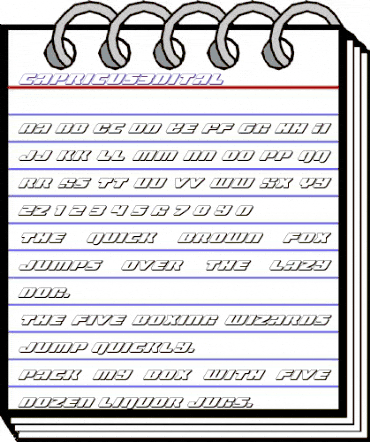 CAPRICUS3DITAL
AA BB CC DD EE FF GG HH II
JJ KK LL MM NN OO PP QQ
RR SS TT UU VV WW XX YY
ZZ 1 2 3 4 5 6 7 8 9 0
THE QUICK BROWN FOX
JUMPS OVER THE LAZY
DOG.
THE FIVE BOXING WIZARDS
JUMP QUICKLY.
PACK MY BOX WITH FIVE
DOZEN LIQUOR JUGS.